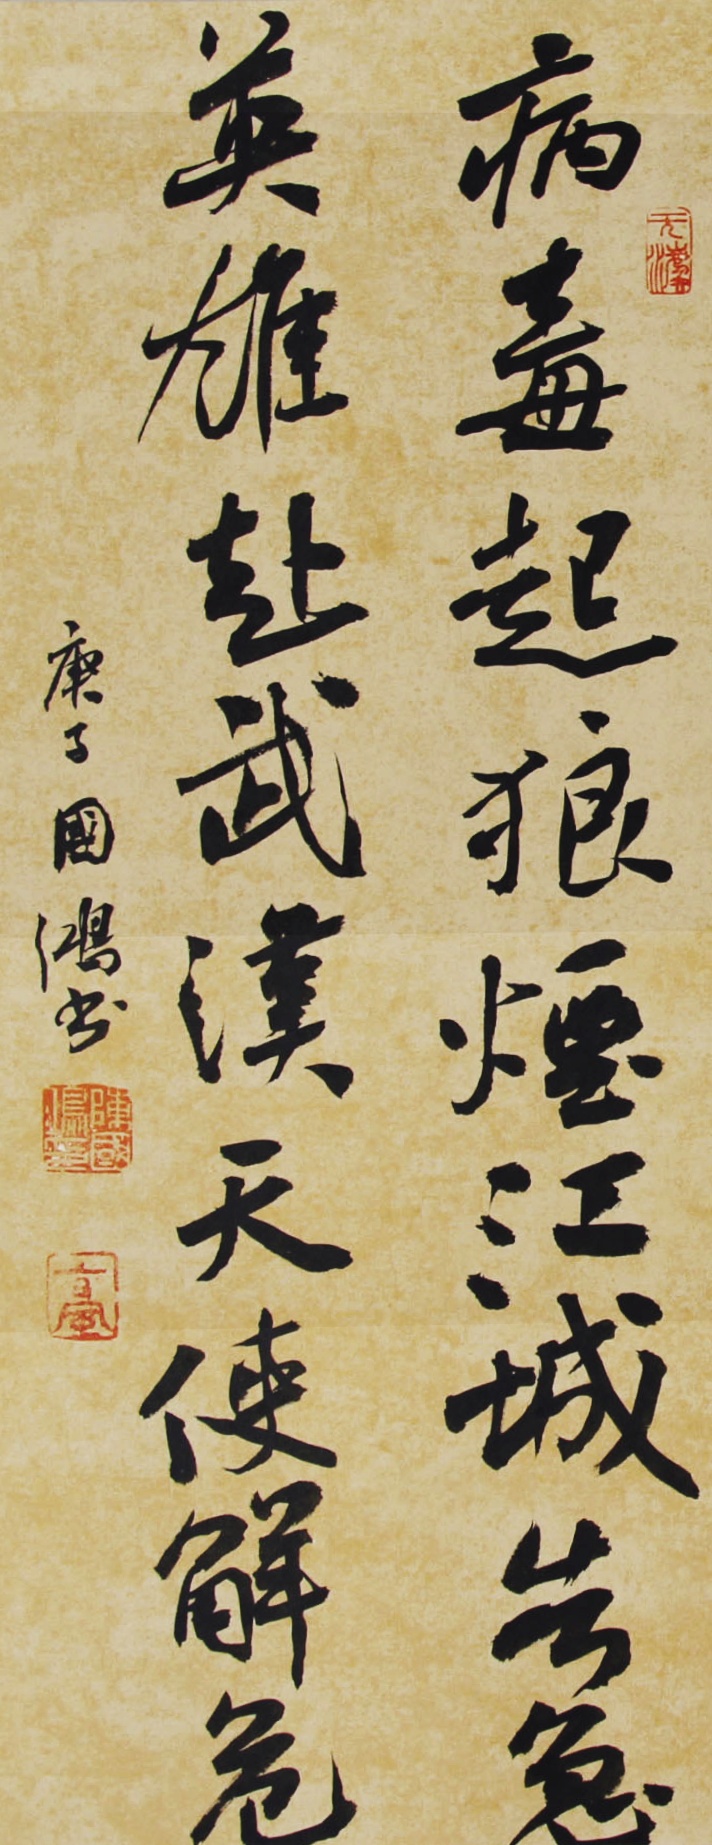 病毒起狼煙江城告急
英雄赴武漢天使解危
庚子國鴻书